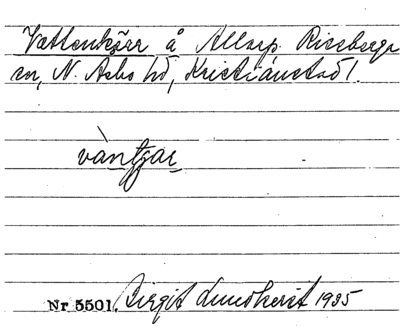 Vattenkäar å Allarp. Riseberga
sn, N. Åsbo hd, Kristianstad l.
vàntzar
Nr 5501. Birgit Lundkvist 1935